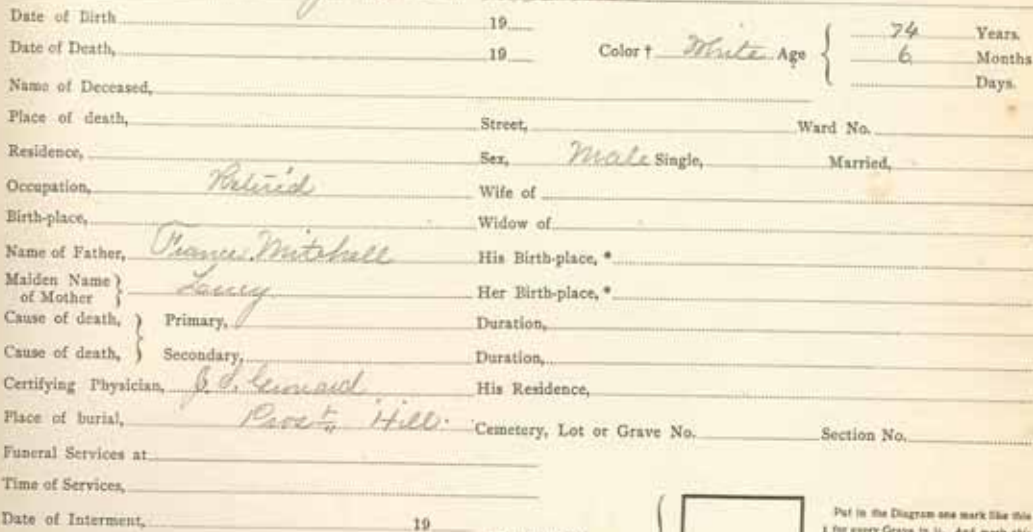 Date of Birth 19
Date of Death, 19 Color † White Age { 74 Years.
6 Months
Days.
Name of Deceased,
Place of death, Street, Ward No.
Residence, Sex, Male Single, Married,
Occupation, Retired Wife of
Birth-place, Widow of
Name of Father, Francis Mitchell His Birth-place, *
Maiden Name } of Mother Laney Her Birth-place, *
Cause of death, } Primary, Duration,
Cause of death, } Secondary, Duration,
Certifying Physician, Leonard His Residence,
Place of burial, Prost. Hill. Cemetery, Lot or Grave No. Section No.
Funeral Services at
Time of Services,
Date of Interment, 19
Put in the Diagram one mark like this
for every Grave in it. And mark this